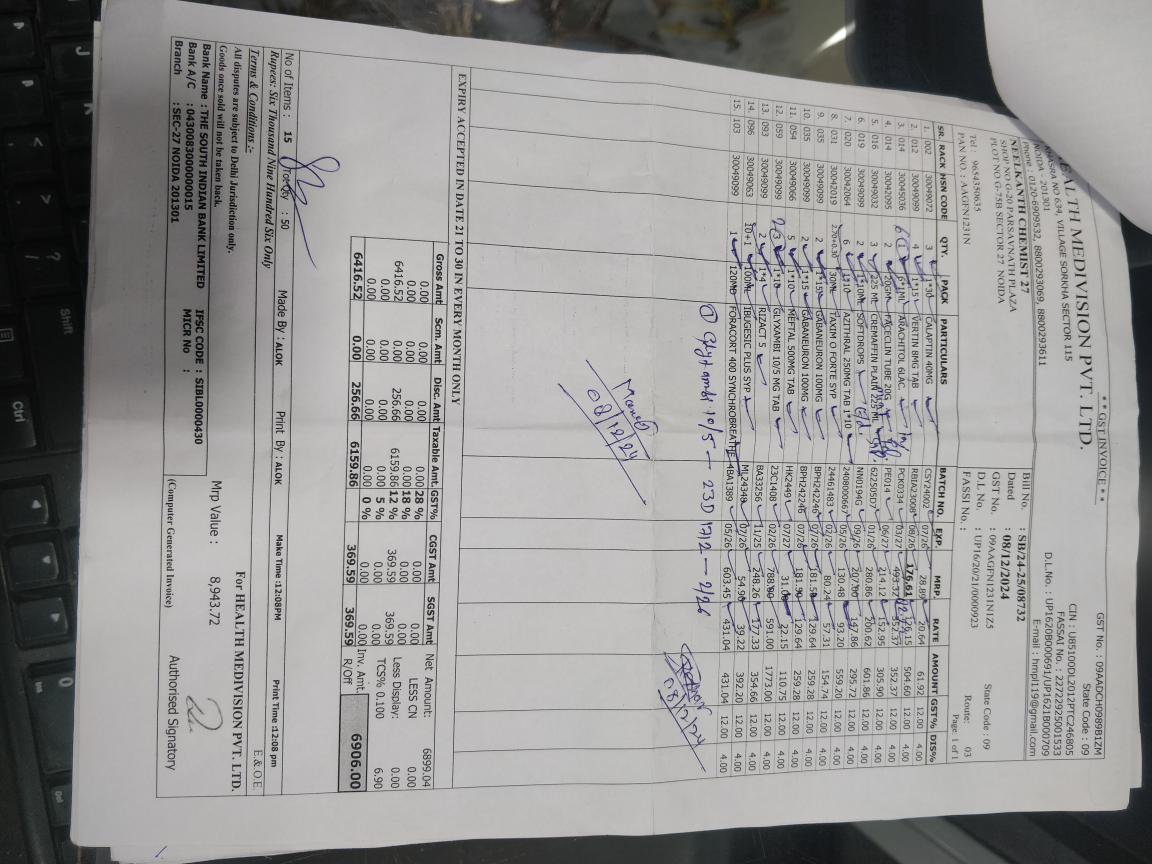 ** GST INVOICE **
GST No. : 09AADCH0989B1ZM
EALTH MEDIVISION PVT. LTD.
State Code : 09
HASRA NO 634, VILLAGE SORKHA SECTOR 115
CIN : U85100DL2012PTC246805
NOIDA - 201301
FASSAI No. : 22722925001533
Phone : 0120-6909532, 8800293069, 8800293611
E-mail : hmpl119@gmail.com
D.L.No. : UP1620B000691/UP1621B000709
NEELKANTH CHEMIST 27
Bill No. : SB/24-25/08732
SHOP NO G-20 PARSAVNATH PLAZA
Dated : 08/12/2024
PLOT NO G-75B SECTOR 27 NOIDA
GST No. : 09AAGFN1231N1Z5
State Code : 09
D.L No. : UP16/20/21/0000923
Tel : 9654350635
FASSI No. :
Route: 03
PAN NO. : AAGFN1231N
Page: 1 of 1
SR. RACK HSN CODE QTY. PACK PARTICULARS BATCH NO. EXP. MRP. RATE AMOUNT GST% DIS%
1. 002 30049072 3 1*30 CALAPTIN 40MG CSY24002 07/26 28.89 20.64 61.92 12.00 4.00
2. 012 30049099 4 1*15 VERTIN 8MG TAB RBIA23008 08/26 176.61 126.15 504.60 12.00 4.00
3. 014 30045036 1 6*1ML ARACHITOL 6LAC. PCK0334 03/27 493.32 352.37 352.37 12.00 4.00
4. 014 30042095 2 20GM FACECLIN TUBE 20G PE014 06/27 214.12 152.95 305.90 12.00 4.00
5. 016 30049032 3 225 ML CREMAFFIN PLAIN 225 ML 622505D7 01/26 280.86 200.62 601.86 12.00 4.00
6. 019 30049099 2 1*10ML SOFTDROPS NN0194G 09/26 207.00 147.86 295.72 12.00 4.00
7. 020 30042064 6 1*10 AZITHRAL 250MG TAB 1*10 2408000667 05/26 130.48 93.20 559.20 12.00 4.00
8. 031 30042019 2.70+0.30 30ML TAXIM O FORTE SYP 24461483 02/26 80.24 57.31 154.74 12.00 4.00
9. 035 30049099 2 1*15 GABANEURON 100MG BPH24224 07/26 181.50 129.64 259.28 12.00 4.00
10. 035 30049099 2 1*15 GABANEURON 100MG BPH24224 07/26 181.50 129.64 259.28 12.00 4.00
11. 054 30049066 5 1*10 MEFTAL 500MG TAB HK2449 07/27 31.00 22.15 110.75 12.00 4.00
12. 059 30049099 3 1*10 GLYXAMBI 10/5 MG TAB 23C1408 02/26 788.00 591.00 1773.00 12.00 4.00
13. 093 30049099 2 1*4 RIZACT 5 BA33256 11/25 248.26 177.33 354.66 12.00 4.00
14. 096 30049063 10+1 100ML IBUGESIC PLUS SYP ML24348 07/26 54.90 39.22 392.20 12.00 4.00
15. 103 30049099 1 120MD FORACORT 400 SYNCHROBREATHE 4BA1389 05/26 603.45 431.04 431.04 12.00 4.00
① Glyxambi 10/5 — 23D 1712 — 2/26
08/12/24
08/12/24
EXPIRY ACCEPTED IN DATE 21 TO 30 IN EVERY MONTH ONLY
Gross Amt Scm. Amt Disc. Amt Taxable Amt. GST% CGST Amt SGST Amt
0.00 0.00 0.00 0.00 28 % 0.00 0.00
0.00 0.00 0.00 0.00 18 % 0.00 0.00
6416.52 0.00 256.66 6159.86 12 % 369.59 369.59
0.00 0.00 0.00 0.00 5 % 0.00 0.00
0.00 0.00 0.00 0.00 0 % 0.00 0.00
6416.52 0.00 256.66 6159.86 369.59 369.59
Net Amount: 6899.04
LESS CN 0.00
Less Display: 0.00
TCS% 0.100 6.90
Inv. Amt. R/Off 6906.00
No of Items : 15 Tot Qty : 50 Made By : ALOK Print By : ALOK Make Time :12:08PM Print Time :12:08 pm
Rupees: Six Thousand Nine Hundred Six Only
E.& O.E.
Terms & Conditions :-
For HEALTH MEDIVISION PVT. LTD.
All disputes are subject to Delhi Jurisdiction only.
Goods once sold will not be taken back.
Mrp Value : 8,943.72
Bank Name : THE SOUTH INDIAN BANK LIMITED IFSC CODE : SIBL0000430
Bank A/C : 0430083000000015 MICR No :
Branch : SEC-27 NOIDA 201301
(Computer Generated Invoice)
Authorised Signatory
Shift
Ctrl